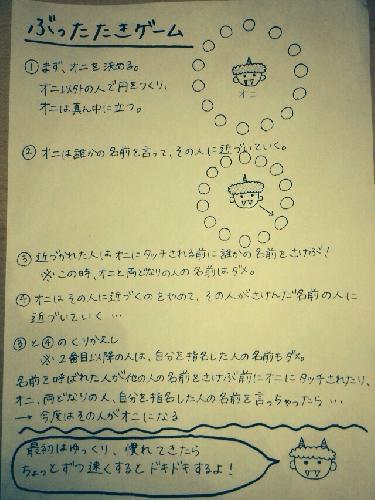 ぶったたきゲーム
① まず、オニを決める。
オニ以外の人で円をつくり、
オニは真ん中に立つ。
オニ
② オニは誰かの名前を言って、その人に近づいていく。
③ 近づかれた人はオニにタッチされる前に誰かの名前をさけぶ!
※この時、オニと両どなりの人の名前はダメ。
④ オニはその人に近づくのをやめて、その人がさけんだ名前の人に
近づいていく…
③と④のくりかえし
※2番目以降の人は、自分を指名した人の名前もダメ。
名前を呼ばれた人が他の人の名前をさけぶ前にオニにタッチされたり、
オニ、両どなりの人、自分を指名した人の名前を言っちゃったら…
→ 今度はその人がオニになる
最初はゆっくり、慣れてきたら
ちょっとずつ速くするとドキドキするよ!